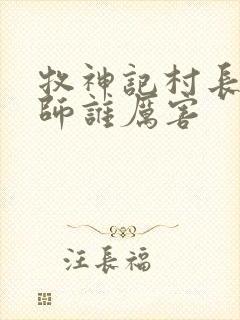 牧神記村長
師誰厲害
汪長福